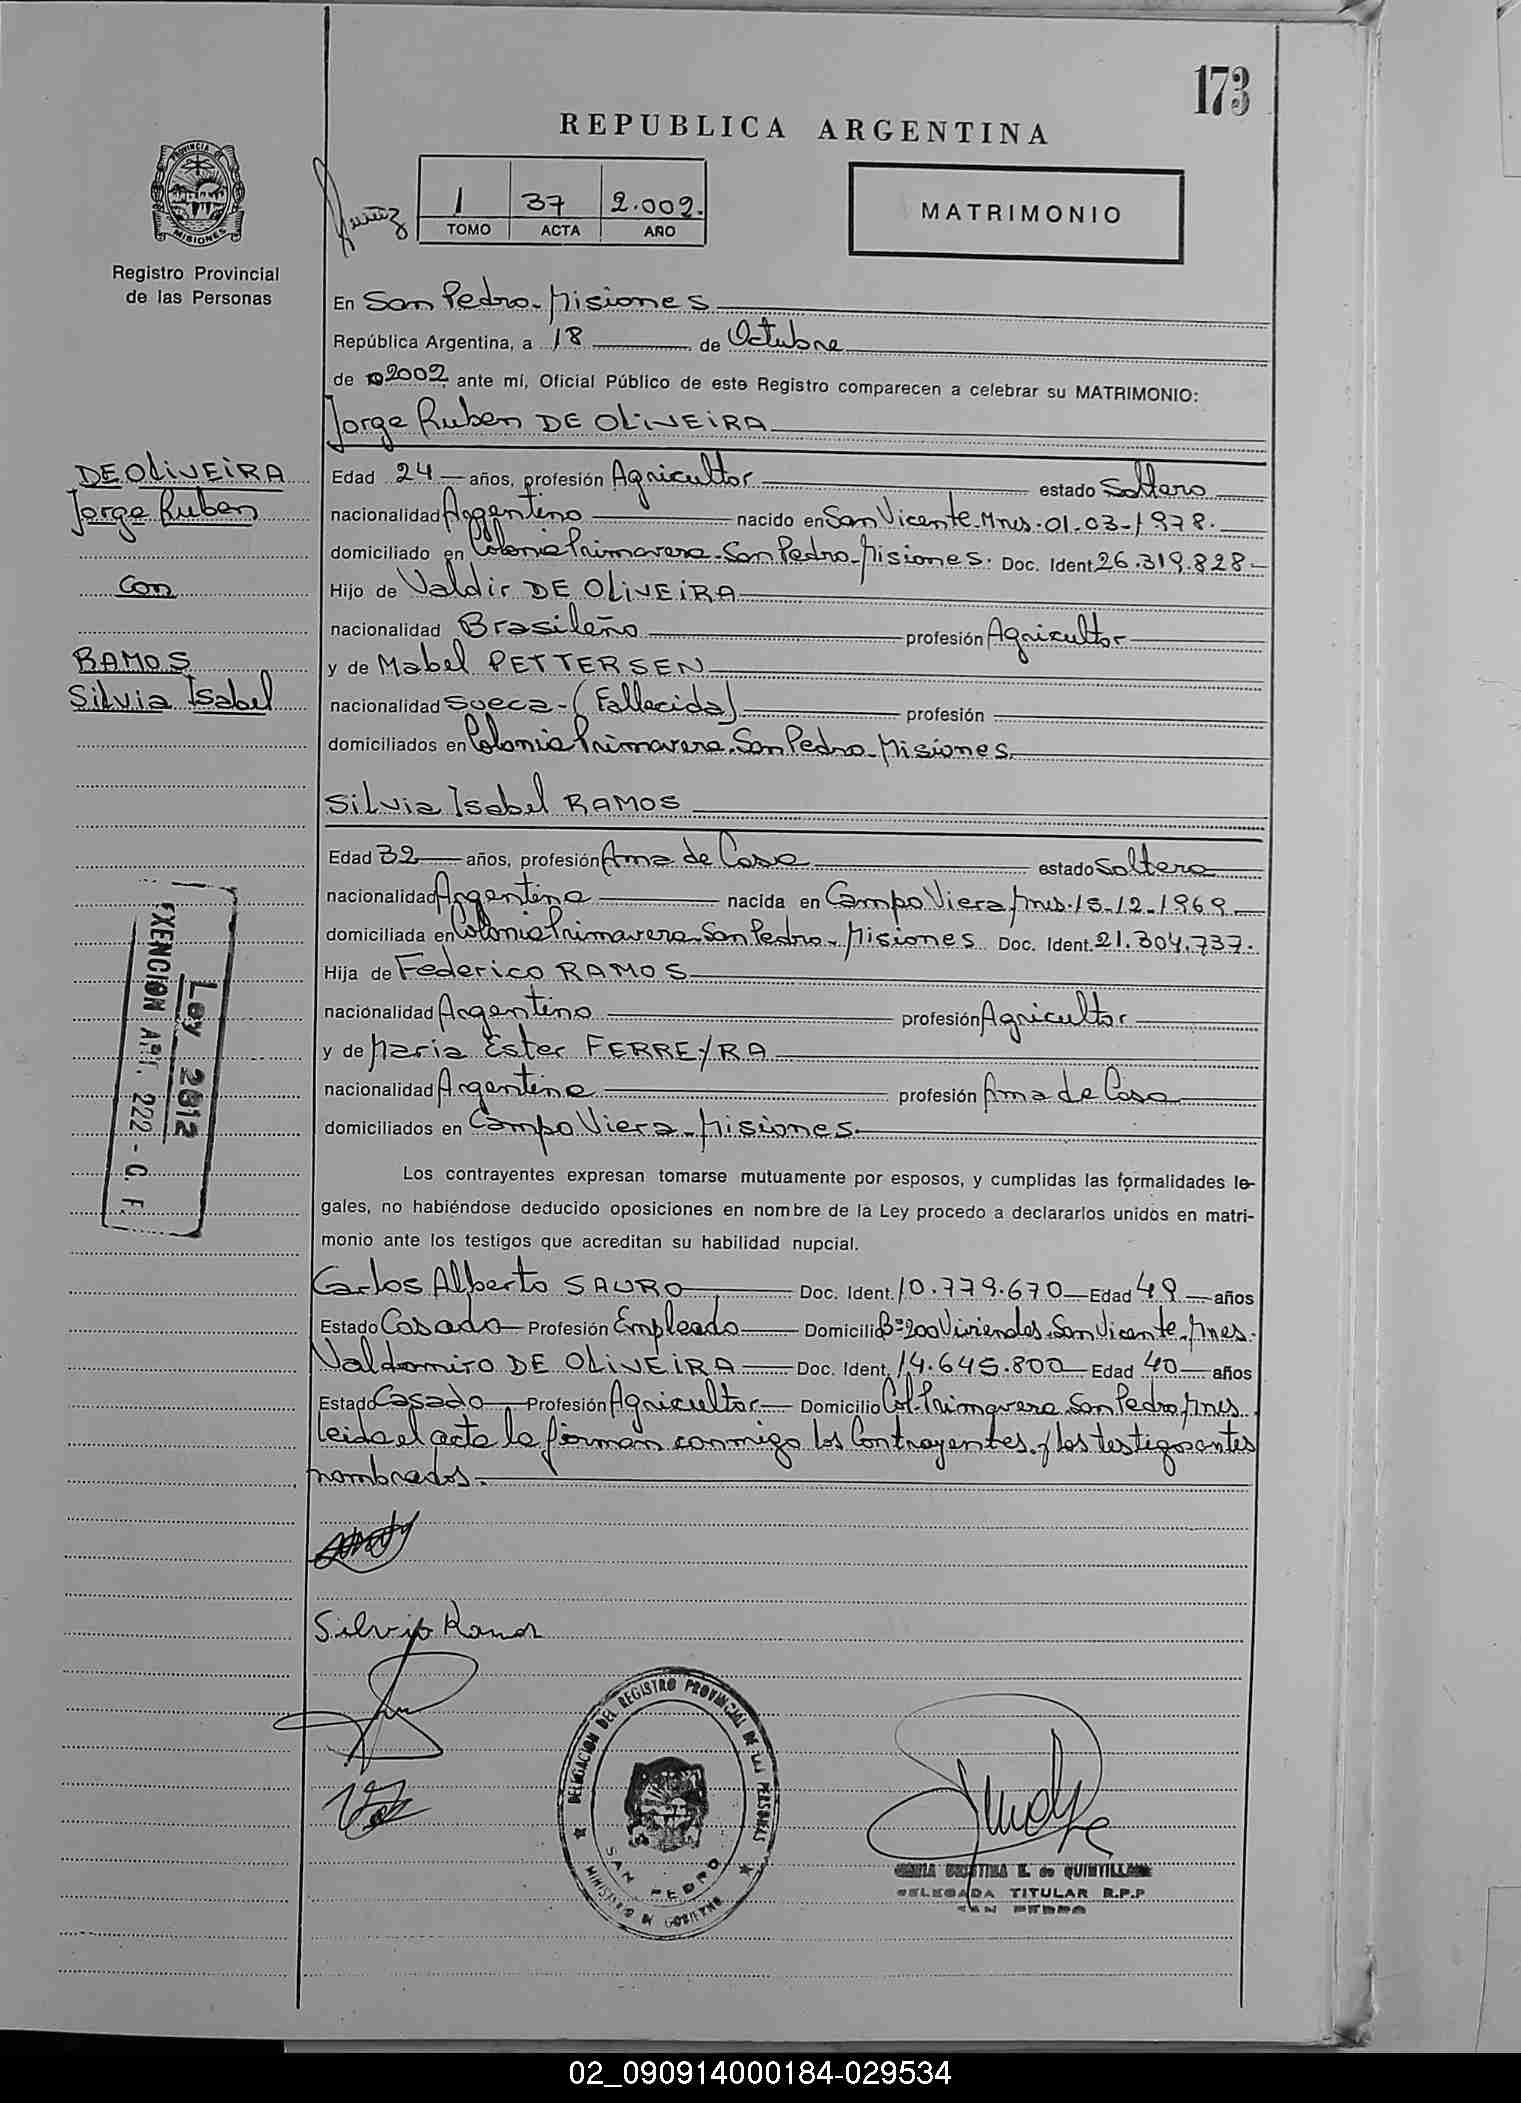 173
REPUBLICA ARGENTINA
PROVINCIA DE
MISIONES
Registro Provincial
de las Personas
1 37 2.002.
TOMO ACTA AÑO
MATRIMONIO
En San Pedro-Misiones
República Argentina, a 18 de Octubre
de 2002 ante mí, Oficial Público de este Registro comparecen a celebrar su MATRIMONIO:
Jorge Ruben DE OLiVEiRA
DE OLiVEiRA
Jorge Ruben
con
RAMOS
Silvia Isabel
Edad 24 años, profesión Agricultor estado Soltero
nacionalidad Argentino nacido en San Vicente-Mnes-01-03-1978.
domiciliado en Colonia Primavera-San Pedro-Misiones. Doc. Ident. 26.319.828-
Hijo de Valdir DE OLiVEiRA
nacionalidad Brasileño profesión Agricultor
y de Mabel PETTERSEN
nacionalidad Sueca-(Fallecida) profesión
domiciliados en Colonia Primavera-San Pedro-Misiones.
Silvia Isabel RAMOS
Edad 32 años, profesión Ama de Casa estado Soltera
nacionalidad Argentina nacida en Campo Viera Mnes-15-12-1969
domiciliada en Colonia Primavera-San Pedro-Misiones Doc. Ident. 21.304.737.
Hija de Federico RAMOS
nacionalidad Argentino profesión Agricultor
y de Maria Ester FERREYRA
nacionalidad Argentina profesión Ama de Casa
domiciliados en Campo Viera-Misiones.
Ley 2812
EXENCION ART. 222 - C. F.
Los contrayentes expresan tomarse mutuamente por esposos, y cumplidas las formalidades le-
gales, no habiéndose deducido oposiciones en nombre de la Ley procedo a declararlos unidos en matri-
monio ante los testigos que acreditan su habilidad nupcial.
Carlos Alberto SAURO Doc. Ident. 10.779.670 Edad 49 años
Estado Casado Profesión Empleado Domicilio Bº 200 Viviendas-San Vicente-Mnes.
Valdomiro DE OLiVEiRA Doc. Ident. 14.645.800 Edad 40 años
Estado Casado Profesión Agricultor Domicilio Col. Primavera San Pedro Mnes.
leida el acta la firman conmigo los Contrayentes y los testigos antes
nombrados.
Silvia Ramos
DELEGACION DEL REGISTRO PROVINCIAL DE LAS PERSONAS
SAN PEDRO
MINISTERIO DE GOBIERNO
MARIA CRISTINA E. de
DELEGADA TITULAR R.P.P
SAN PEDRO
02_090914000184-029534